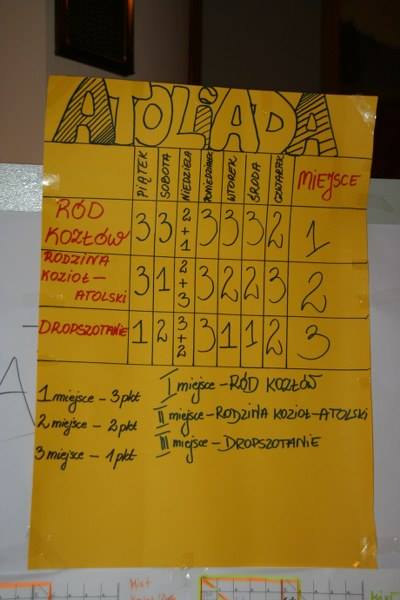 ATOLiADA
PIĄTEK SOBOTA NIEDZIELA PONIEDZIAŁEK WTOREK ŚRODA CZWARTEK MIEJSCE
RÓD KOZŁÓW 3 3 2+1 3 3 3 2 1
RODZINA KOZIOŁ-ATOLSKI 3 1 2+3 3 2 2 3 2
DROPSZOTANIE 1 2 3+2 3 1 1 2 3
1 miejsce - 3 pkt
2 miejsce - 2 pkt
3 miejsce - 1 pkt
I miejsce - RÓD KOZŁÓW
II miejsce - RODZINA KOZIOŁ-ATOLSKI
III miejsce - DROPSZOTANIE